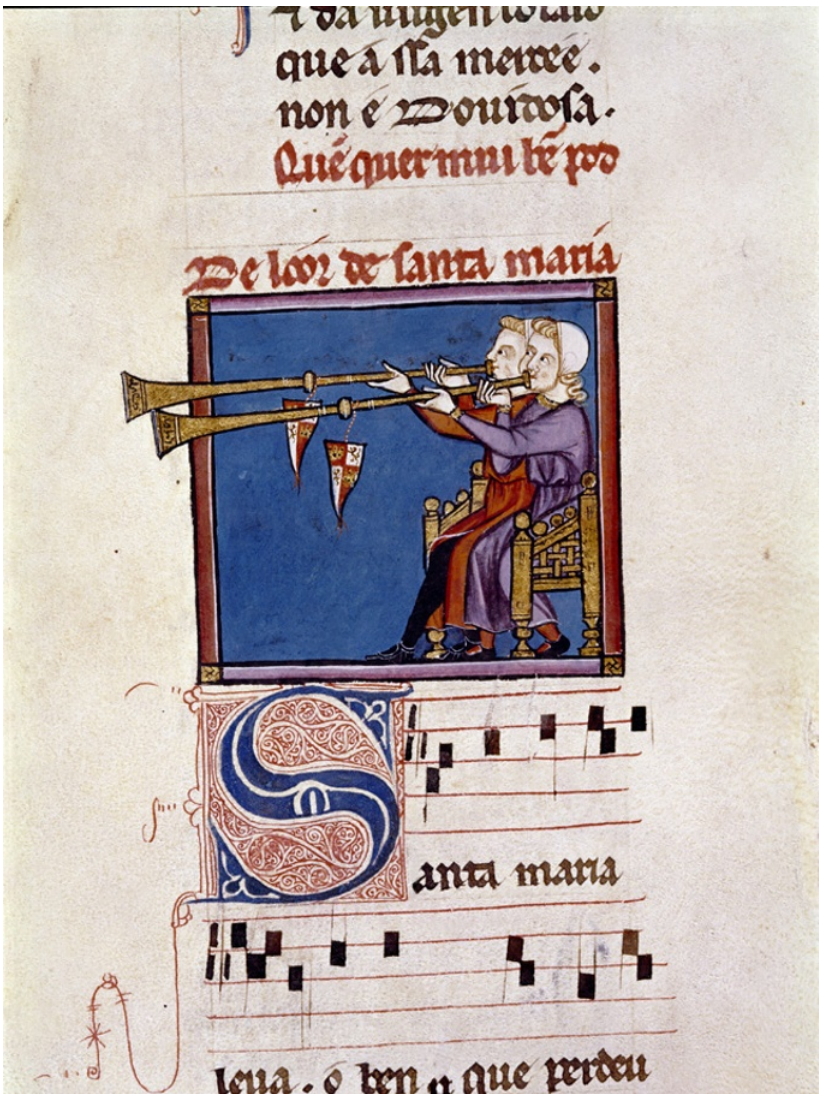 da uirgen
que a ssa mercee.
non é Douidosa.
Quē quer mui bē pod
De loor de santa maria
Santa maria
leua. o ben que perdeu